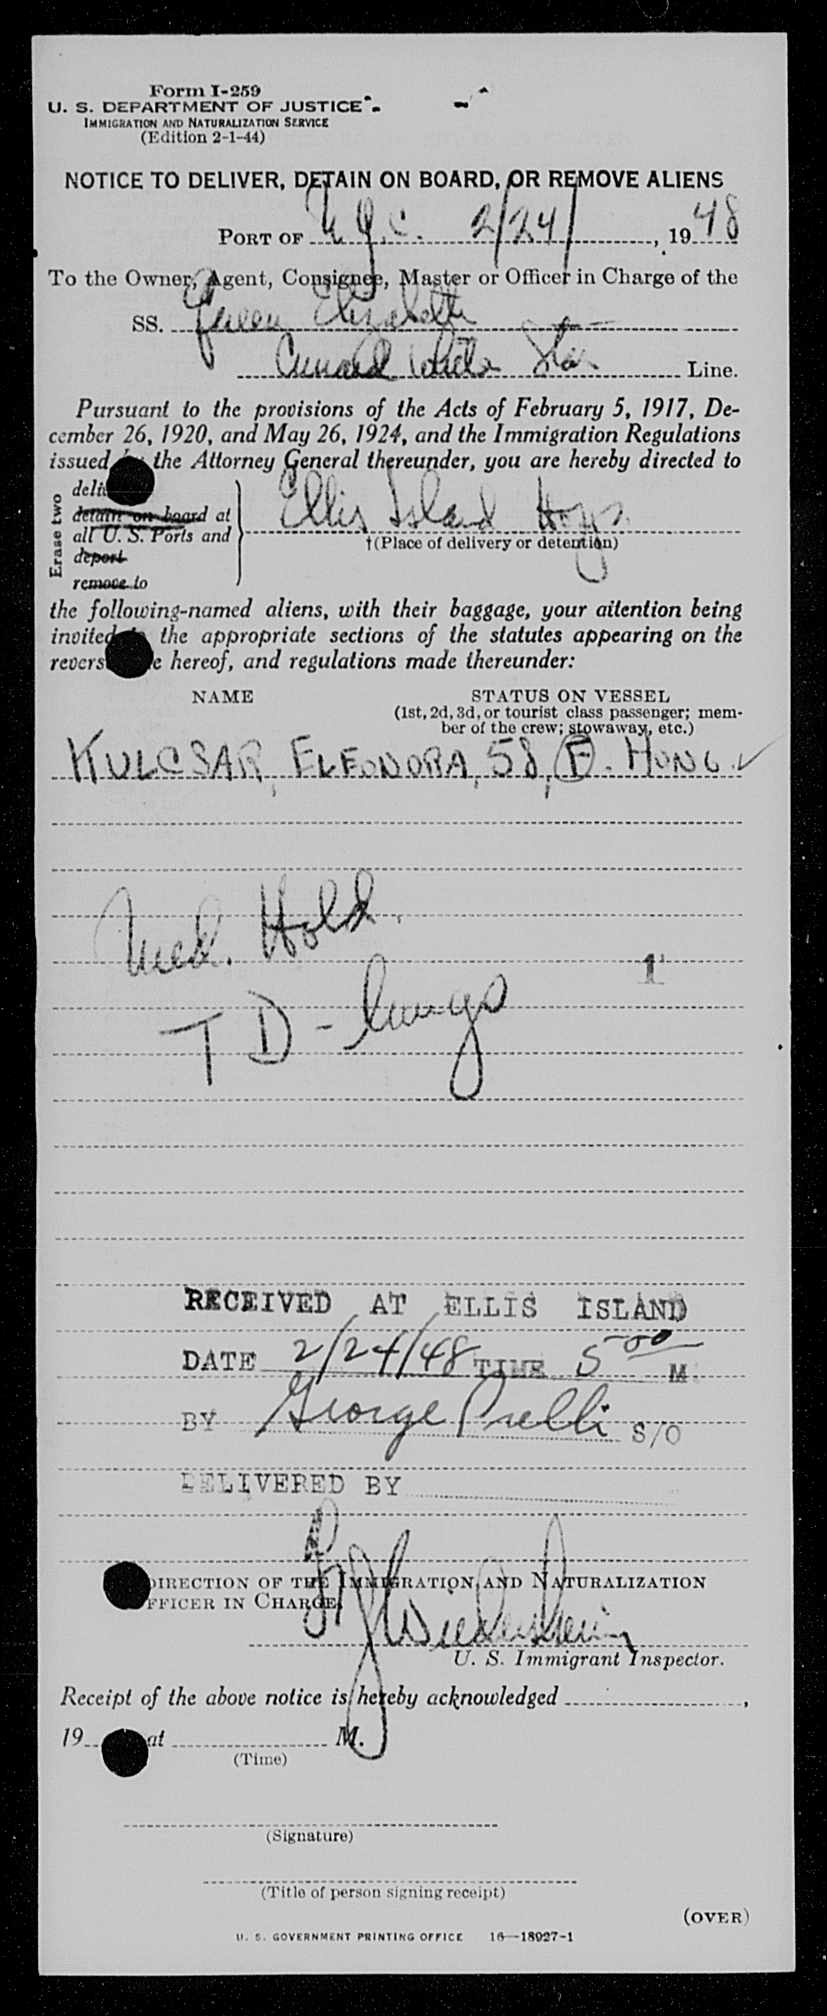 Form I-259
U. S. DEPARTMENT OF JUSTICE
IMMIGRATION AND NATURALIZATION SERVICE
(Edition 2-1-44)
NOTICE TO DELIVER, DETAIN ON BOARD, OR REMOVE ALIENS
PORT OF N.Y.C. 2/24/, 1948
To the Owner, Agent, Consignee, Master or Officer in Charge of the
SS. Queen Elizabeth
Cunard White Star Line.
Pursuant to the provisions of the Acts of February 5, 1917, De-
cember 26, 1920, and May 26, 1924, and the Immigration Regulations
issued the Attorney General thereunder, you are hereby directed to
Erase two
deli
detain on board at
all U. S. Ports and
deport
remove to
Ellis Island Hosp.
†(Place of delivery or detention)
the following-named aliens, with their baggage, your attention being
invited the appropriate sections of the statutes appearing on the
revers e hereof, and regulations made thereunder:
NAME STATUS ON VESSEL
(1st, 2d, 3d, or tourist class passenger; mem-
ber of the crew; stowaway, etc.)
KULCSAR, ELEONORA, 58, F. HUNG. ✓
Med. Hold.
1
TB - lungs
RECEIVED AT ELLIS ISLAND
DATE 2/24/48 TIME 5 00 M
BY George S/O
DELIVERED BY
DIRECTION OF THE IMMIGRATION AND NATURALIZATION
FFICER IN CHARGE
U. S. Immigrant Inspector.
Receipt of the above notice is hereby acknowledged ,
19 at M.
(Time)
(Signature)
(Title of person signing receipt)
(OVER)
U. S. GOVERNMENT PRINTING OFFICE 16—18927-1